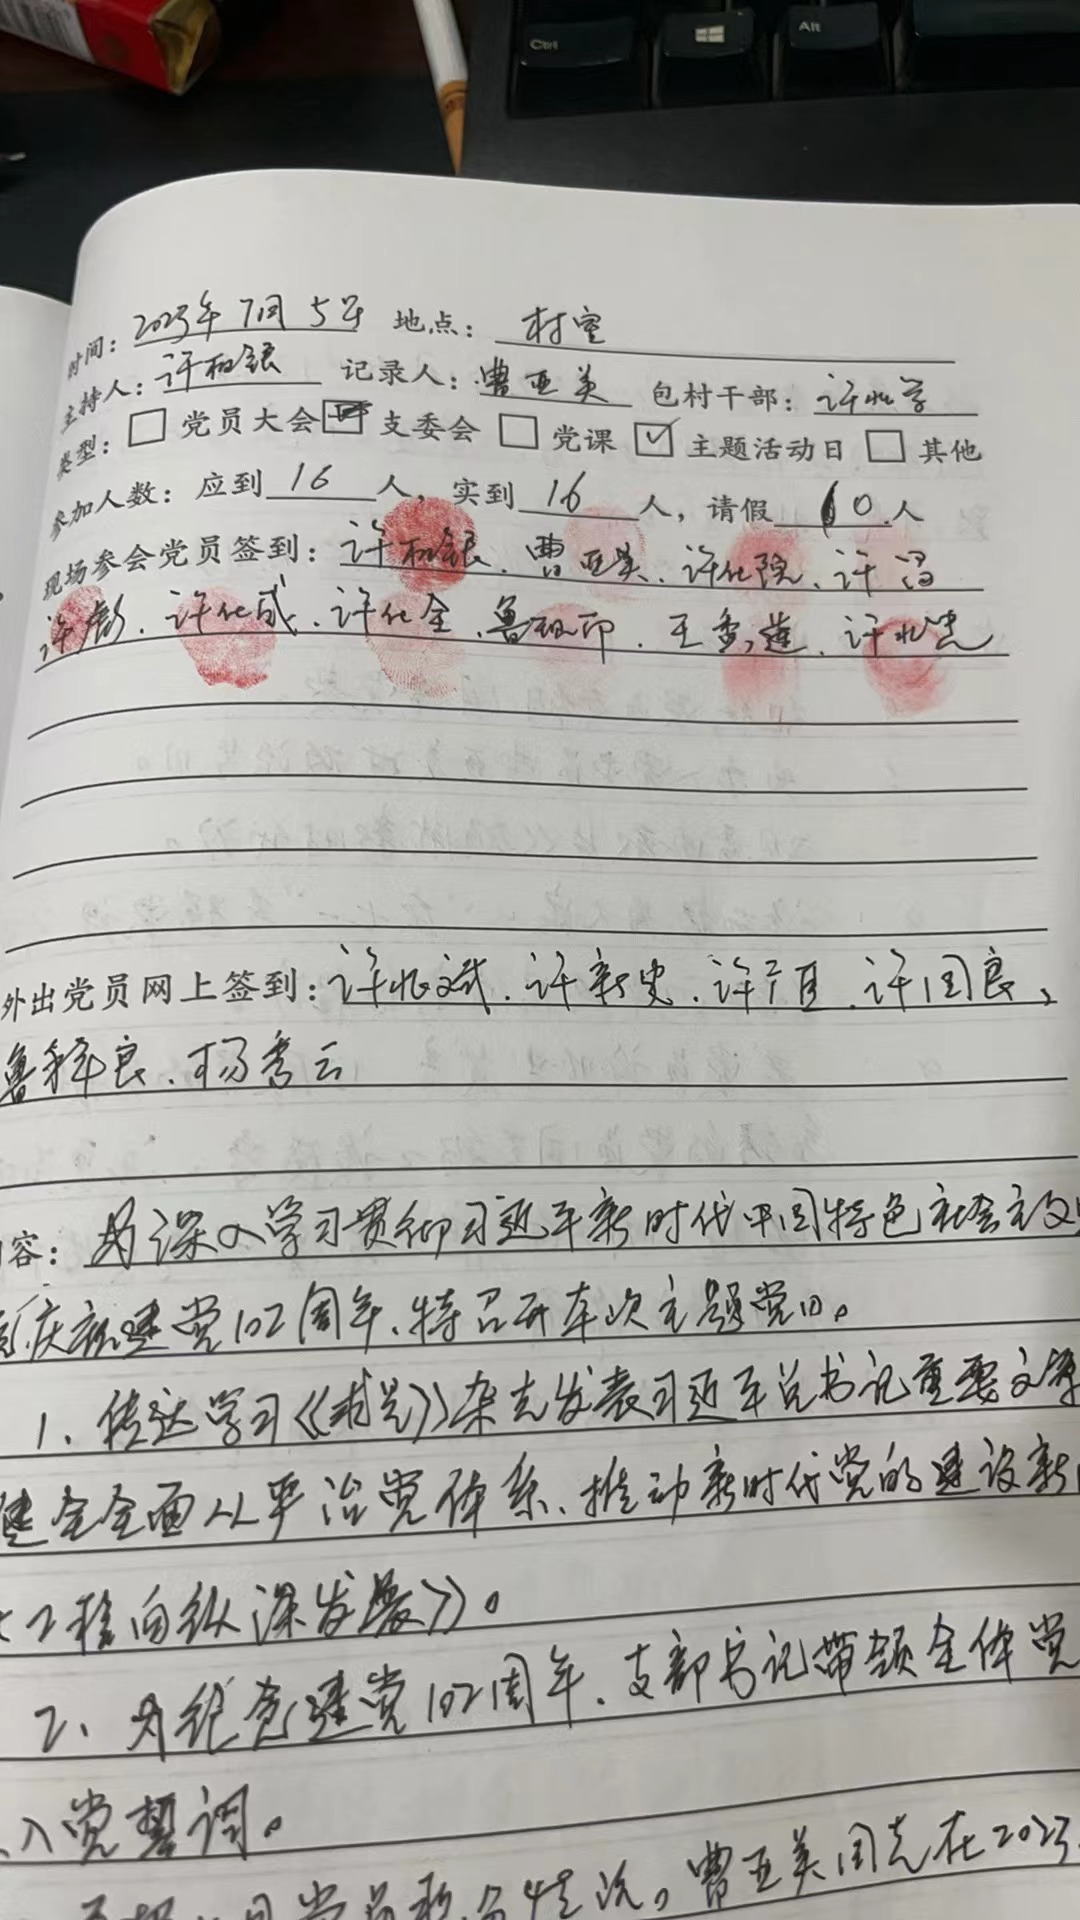 Ctrl
Alt
时间：2023年7月5日 地点：村室
主持人：许 记录人：曹亚美 包村干部：许
类型：□ 党员大会 □ 支委会 □ 党课 ☑ 主题活动日 □ 其他
参加人数：应到 16 人，实到 16 人，请假 0 人
现场参会党员签到：许、曹亚美、许化院、许
许彪、许化成、许化全、鲁、王秀莲、许
外出党员网上签到：许、许新、许、许国良、
鲁良、杨秀云
容：为深入学习贯彻习近平新时代中国特色社会主义
庆祝建党102周年、特召开本次主题党日。
1、传达学习《求是》杂志发表习近平总书记重要文章
健全全面从严治党体系、推动新时代党的建设新
工程向纵深发展》。
2、为纪念建党102周年、支部书记带领全体党
入党誓词。
月党员积分情况。曹亚美同志在2023